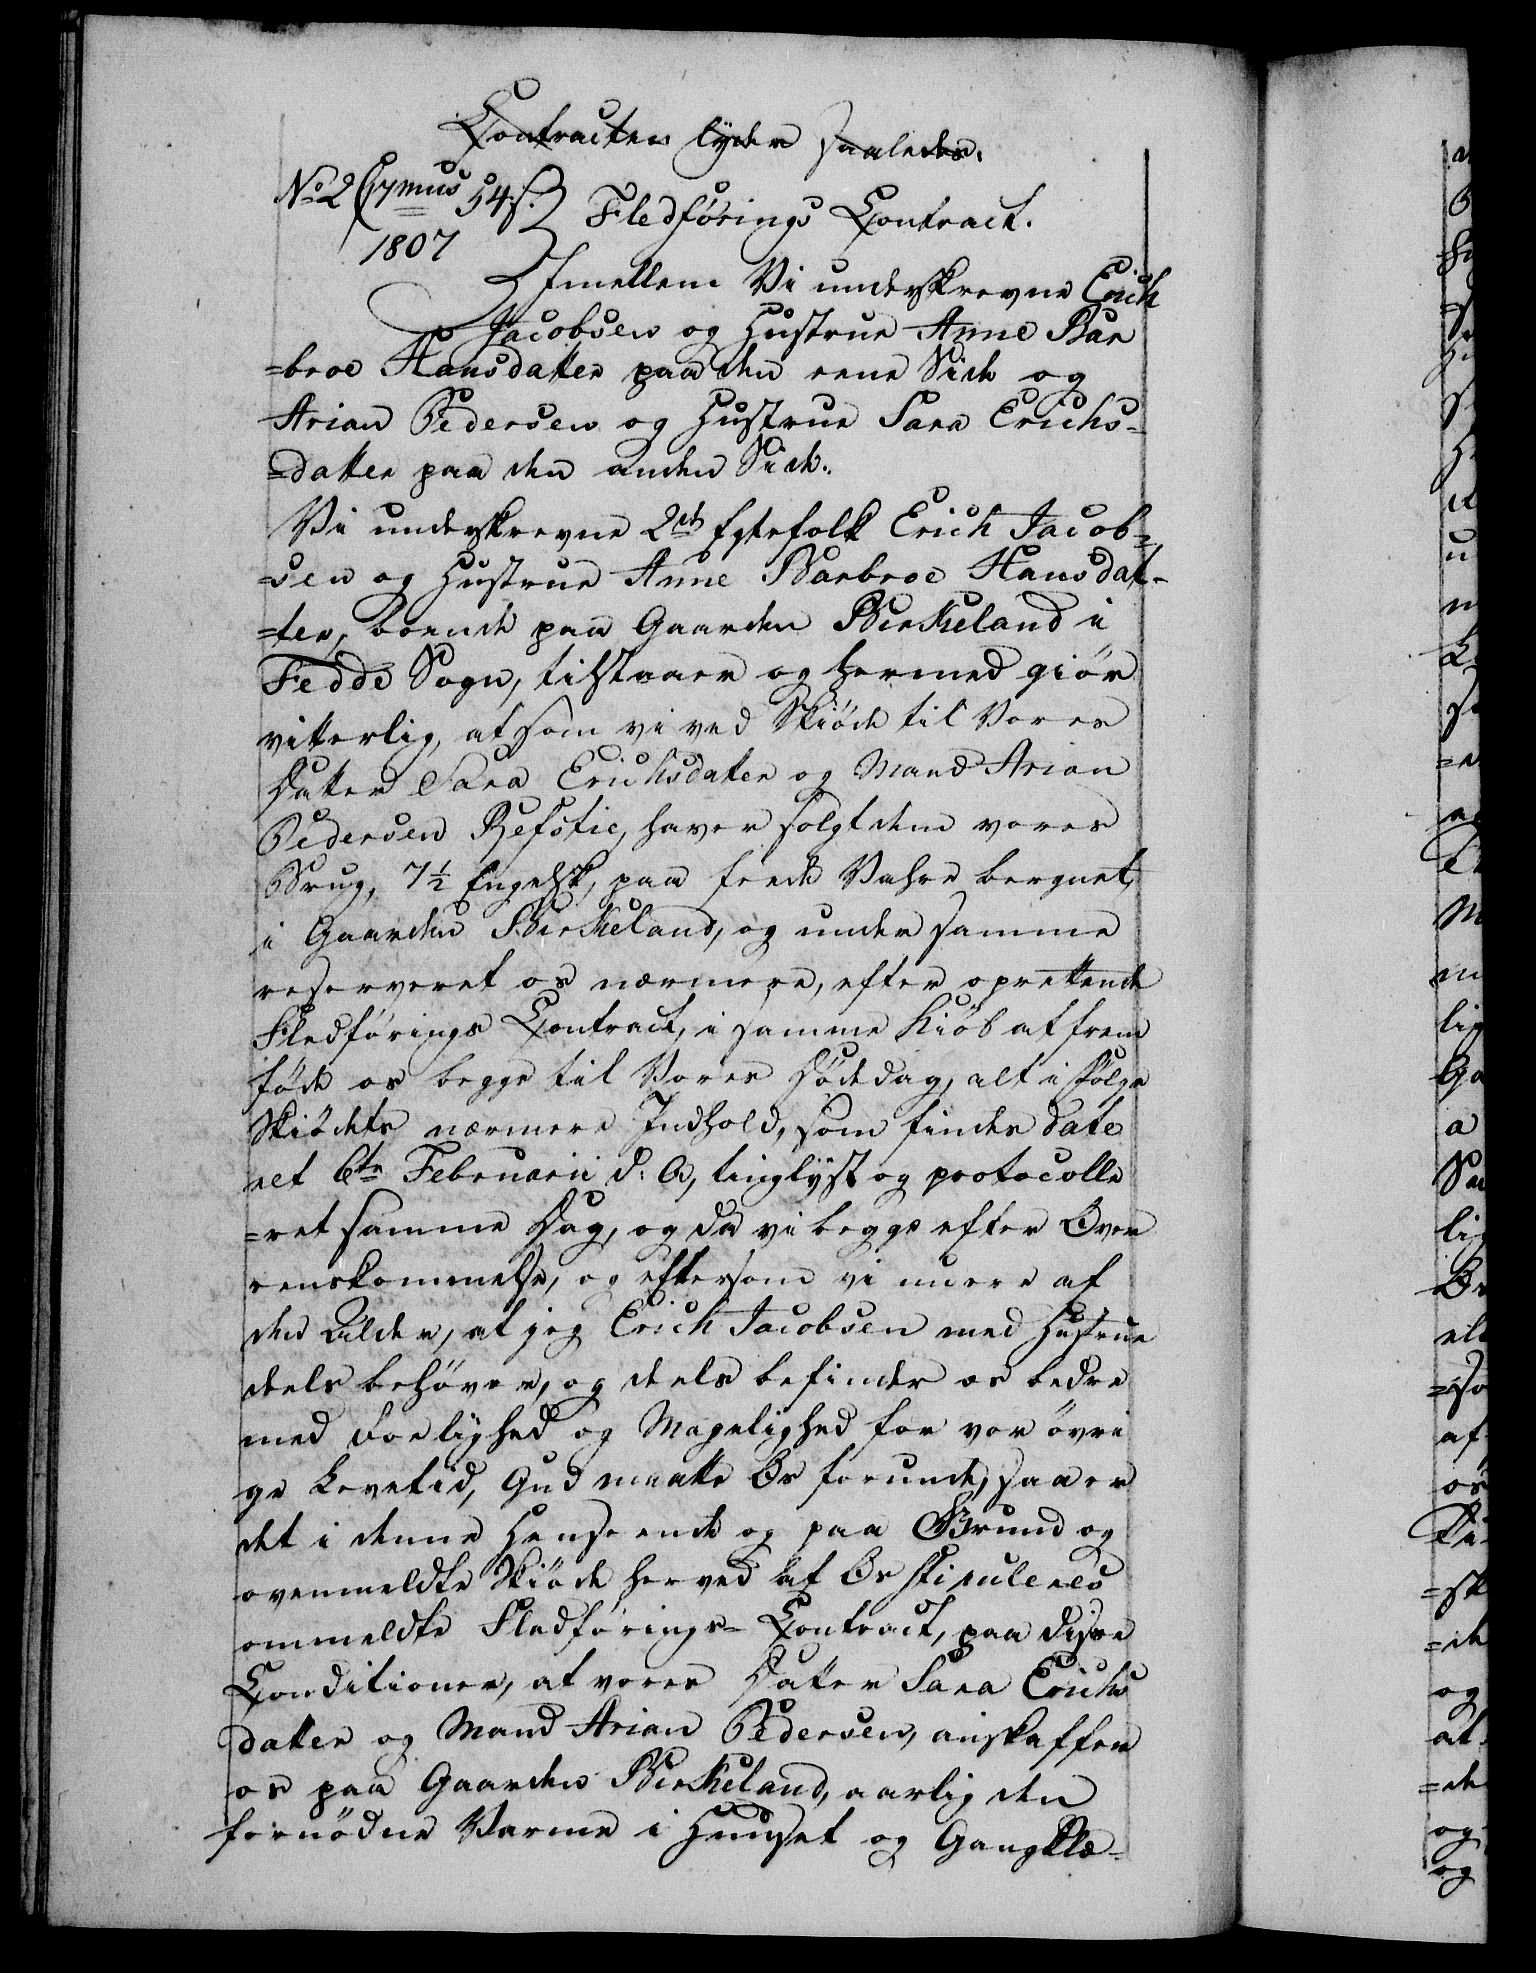 Contracten lyder saaledes.
No 2 Cl7mus 54 s.
1807
Fledførings Contract.
Imellem Vi underskrevne Erich
Jacobsen og Hustrue Anne Bar
=broe Hansdatter paa den eene Side og
Arian Pedersen og Hustrue Sara Erichs=
=datter paa den anden Side.
Vi underskrevne 2de Egtefolk Erich Jacob=
=sen og Hustrue Anne Barbroe Hansdat=
=ter, boende paa Gaarden Birkeland i
Fedde Sogn, tilstaaer og hermed giör
vitterlig, at som vi ved Skiöde til Vores
Datter Sara Erichsdatter og Mand Arian
Pedersen Refstie, haver solgt dem vores
Brug, 7½ Engelsk, paa fende Vahre beregnet,
i Gaarden Birkeland, og under samme
reserveret os nærmere, efter oprettende
Fledførings Contract, i samme Kiöb at frem
föde os begge til Vores Dödedag, alt ifölge
Skiödets nærmere Indhold, som findes date
ret 6te Februarii d: A, tinglyst og protocolle
=ret samme Dag, og da vi begge efter Over
eenskommelse, og eftersom vi nu ere af
den Alder, at jeg Erich Jacobsen med Hustrue
deels behöver, og deels befinder os bedre
med Roelighed og Magelighed for vor övri
ge Levetid, Gud maatte Os forunde, saa er
det i denne Henseende og paa Grund og
ovenmeldte Skiöde herved af Os stipulees
ommeldte Fledførings= Contract, paa disse
Conditioner, at vores Datter Sara Erichs
datter og Mand Arian Pedersen, anskaffer
os paa Gaarden Birkeland, aarlig den
fornödne Varme i Huuset og Gangklæ=